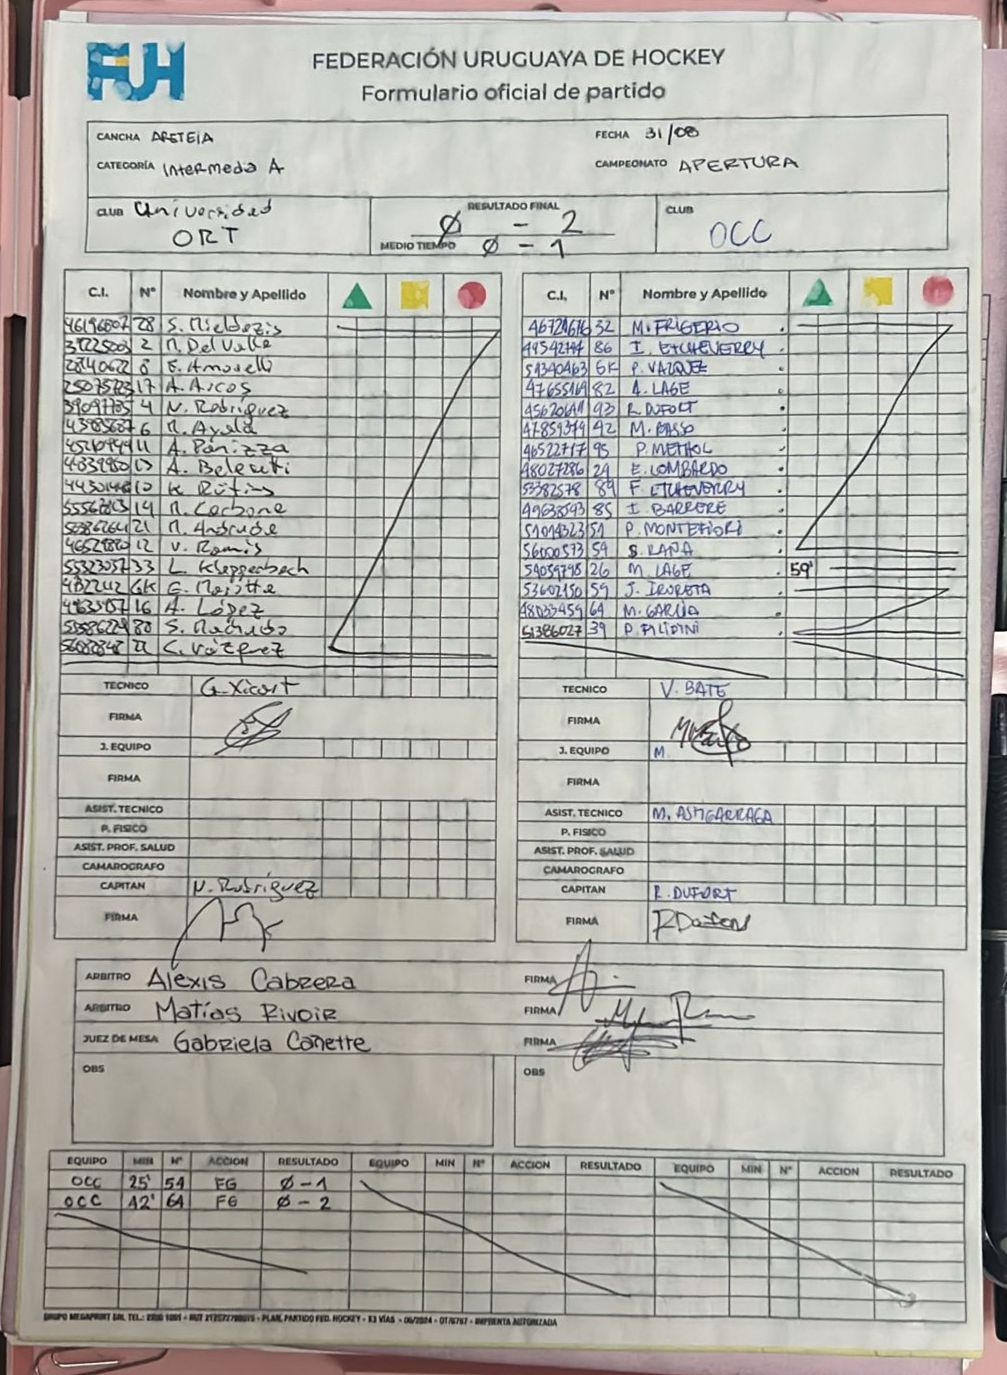 FUH
FEDERACIÓN URUGUAYA DE HOCKEY
Formulario oficial de partido
CANCHA ARETEIA FECHA 31/08
CATEGORÍA Intermedia A CAMPEONATO APERTURA
CLUB Universidad ORT
RESULTADO FINAL Ø - 2
MEDIO TIEMPO Ø - 1
CLUB OCC
C.I. Nº Nombre y Apellido
28 S.
2 M. Del Valle
8 E.
17 A. Arcos
4 N. Rodriguez
6 M. Ayala
11 A. Panizza
13 A.
10 K.
14 M. Carbone
21 M. Andrade
12 V. Ramis
33 L. Kleppenbach
GK G.
16 A. López
80 S. Machado
22 C. Vázquez
TECNICO G. Xicart
FIRMA
J. EQUIPO
FIRMA
ASIST. TECNICO
P. FISICO
ASIST. PROF. SALUD
CAMAROGRAFO
CAPITAN N. Rodríguez
FIRMA
C.I. Nº Nombre y Apellido
32 M. FRIGERIO
86 I. ETCHEVERRY
51340463 GK P. VAZQUEZ
47655169 82 A. LAGE
93 R. DUFORT
47859379 42 M. BASSO
46522717 95 P. METHOL
48027286 29 E. LOMBARDO
53382578 89 F. ETCHEVERRY
49638593 85 I. BARRERE
51014323 51 P. MONTEFIORI
56000573 54 S. RAÑA
54059798 26 M. LAGE 59'
53602150 59 J. IRURETA
48033459 64 M. GARCIA
51386027 39 P. FILIPINI
TECNICO V. BATE
FIRMA
J. EQUIPO M.
FIRMA
ASIST. TECNICO M. ASTIGARRAGA
P. FISICO
ASIST. PROF. SALUD
CAMAROGRAFO
CAPITAN R. DUFORT
FIRMA R Dufort
ARBITRO Alexis Cabrera FIRMA
ARBITRO Matías Rivoir FIRMA
JUEZ DE MESA Gabriela Canette FIRMA
OBS OBS
EQUIPO MIN Nº ACCION RESULTADO EQUIPO MIN Nº ACCION RESULTADO EQUIPO MIN Nº ACCION RESULTADO
OCC 25' 54 FG Ø-1
OCC 42' 64 FG Ø-2
EQUIPO MEGAPRINT SRL TEL.: 2908 1001 - RUT 212572790015 - PLAN. PARTIDO FED. HOCKEY - X3 VÍAS - 06/2024 - OT/6767 - IMPRENTA AUTORIZADA